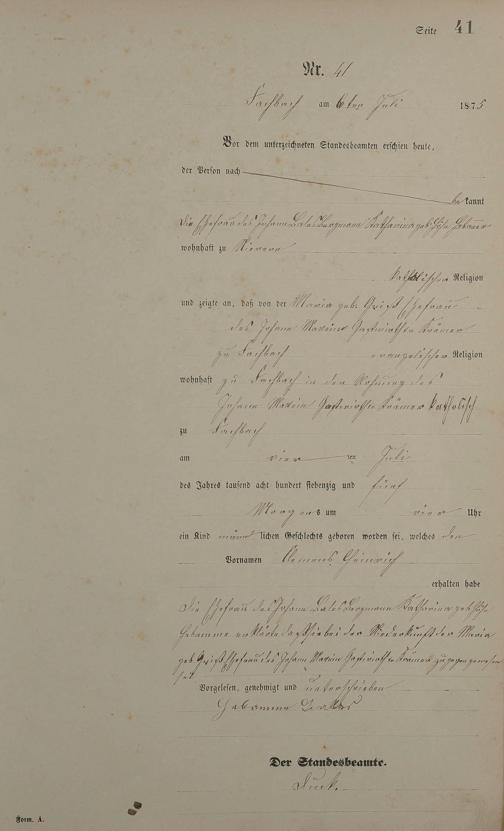 Seite 41
Nr. 41
Fachbach am 6ten Juli 1875
Vor dem unterzeichneten Standesbeamten erschien heute,
der Person nach
be kannt
die Ehefrau des Johann Bergmann Katharina geb. Hebamme
wohnhaft zu Nievern
katholischer Religion
und zeigte an, daß von der Maria geb. Ehefrau
des Johann Gastwirth u Krämer
zu Fachbach evangelischer Religion
wohnhaft zu Fachbach in der Wohnung des
Johann Gastwirth u Krämer katholisch
zu Fachbach
am vier ten Juli
des Jahres tausend acht hundert siebenzig und fünf
Morgens um vier Uhr
ein Kind männ lichen Geschlechts geboren worden sei, welches den
Vornamen Clemens Heinrich
erhalten habe
Die Ehefrau des Johann Bergmann Katharina geb.
Hebamme erklärte daß sie bei der Niederkunft der Maria
geb. Ehefrau des Johann Gastwirth u Krämer zugegen gewesen
sei
Vorgelesen, genehmigt und unterschrieben
Hebamme
Der Standesbeamte.
Form. A.